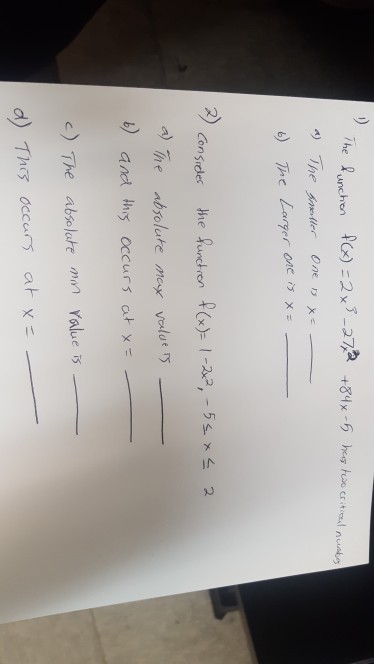 1) The function f(x) = 2x³ - 27x² + 84x - 5 has two critical numbers
a) The smaller one is x = ____
b) The Larger one is x = ____
2) Consider the function f(x) = 1 - 2x², -5 ≤ x ≤ 2
a) The absolute max value is ____
b) and this occurs at x = ____
c) The absolute min value is ____
d) This occurs at x = ____